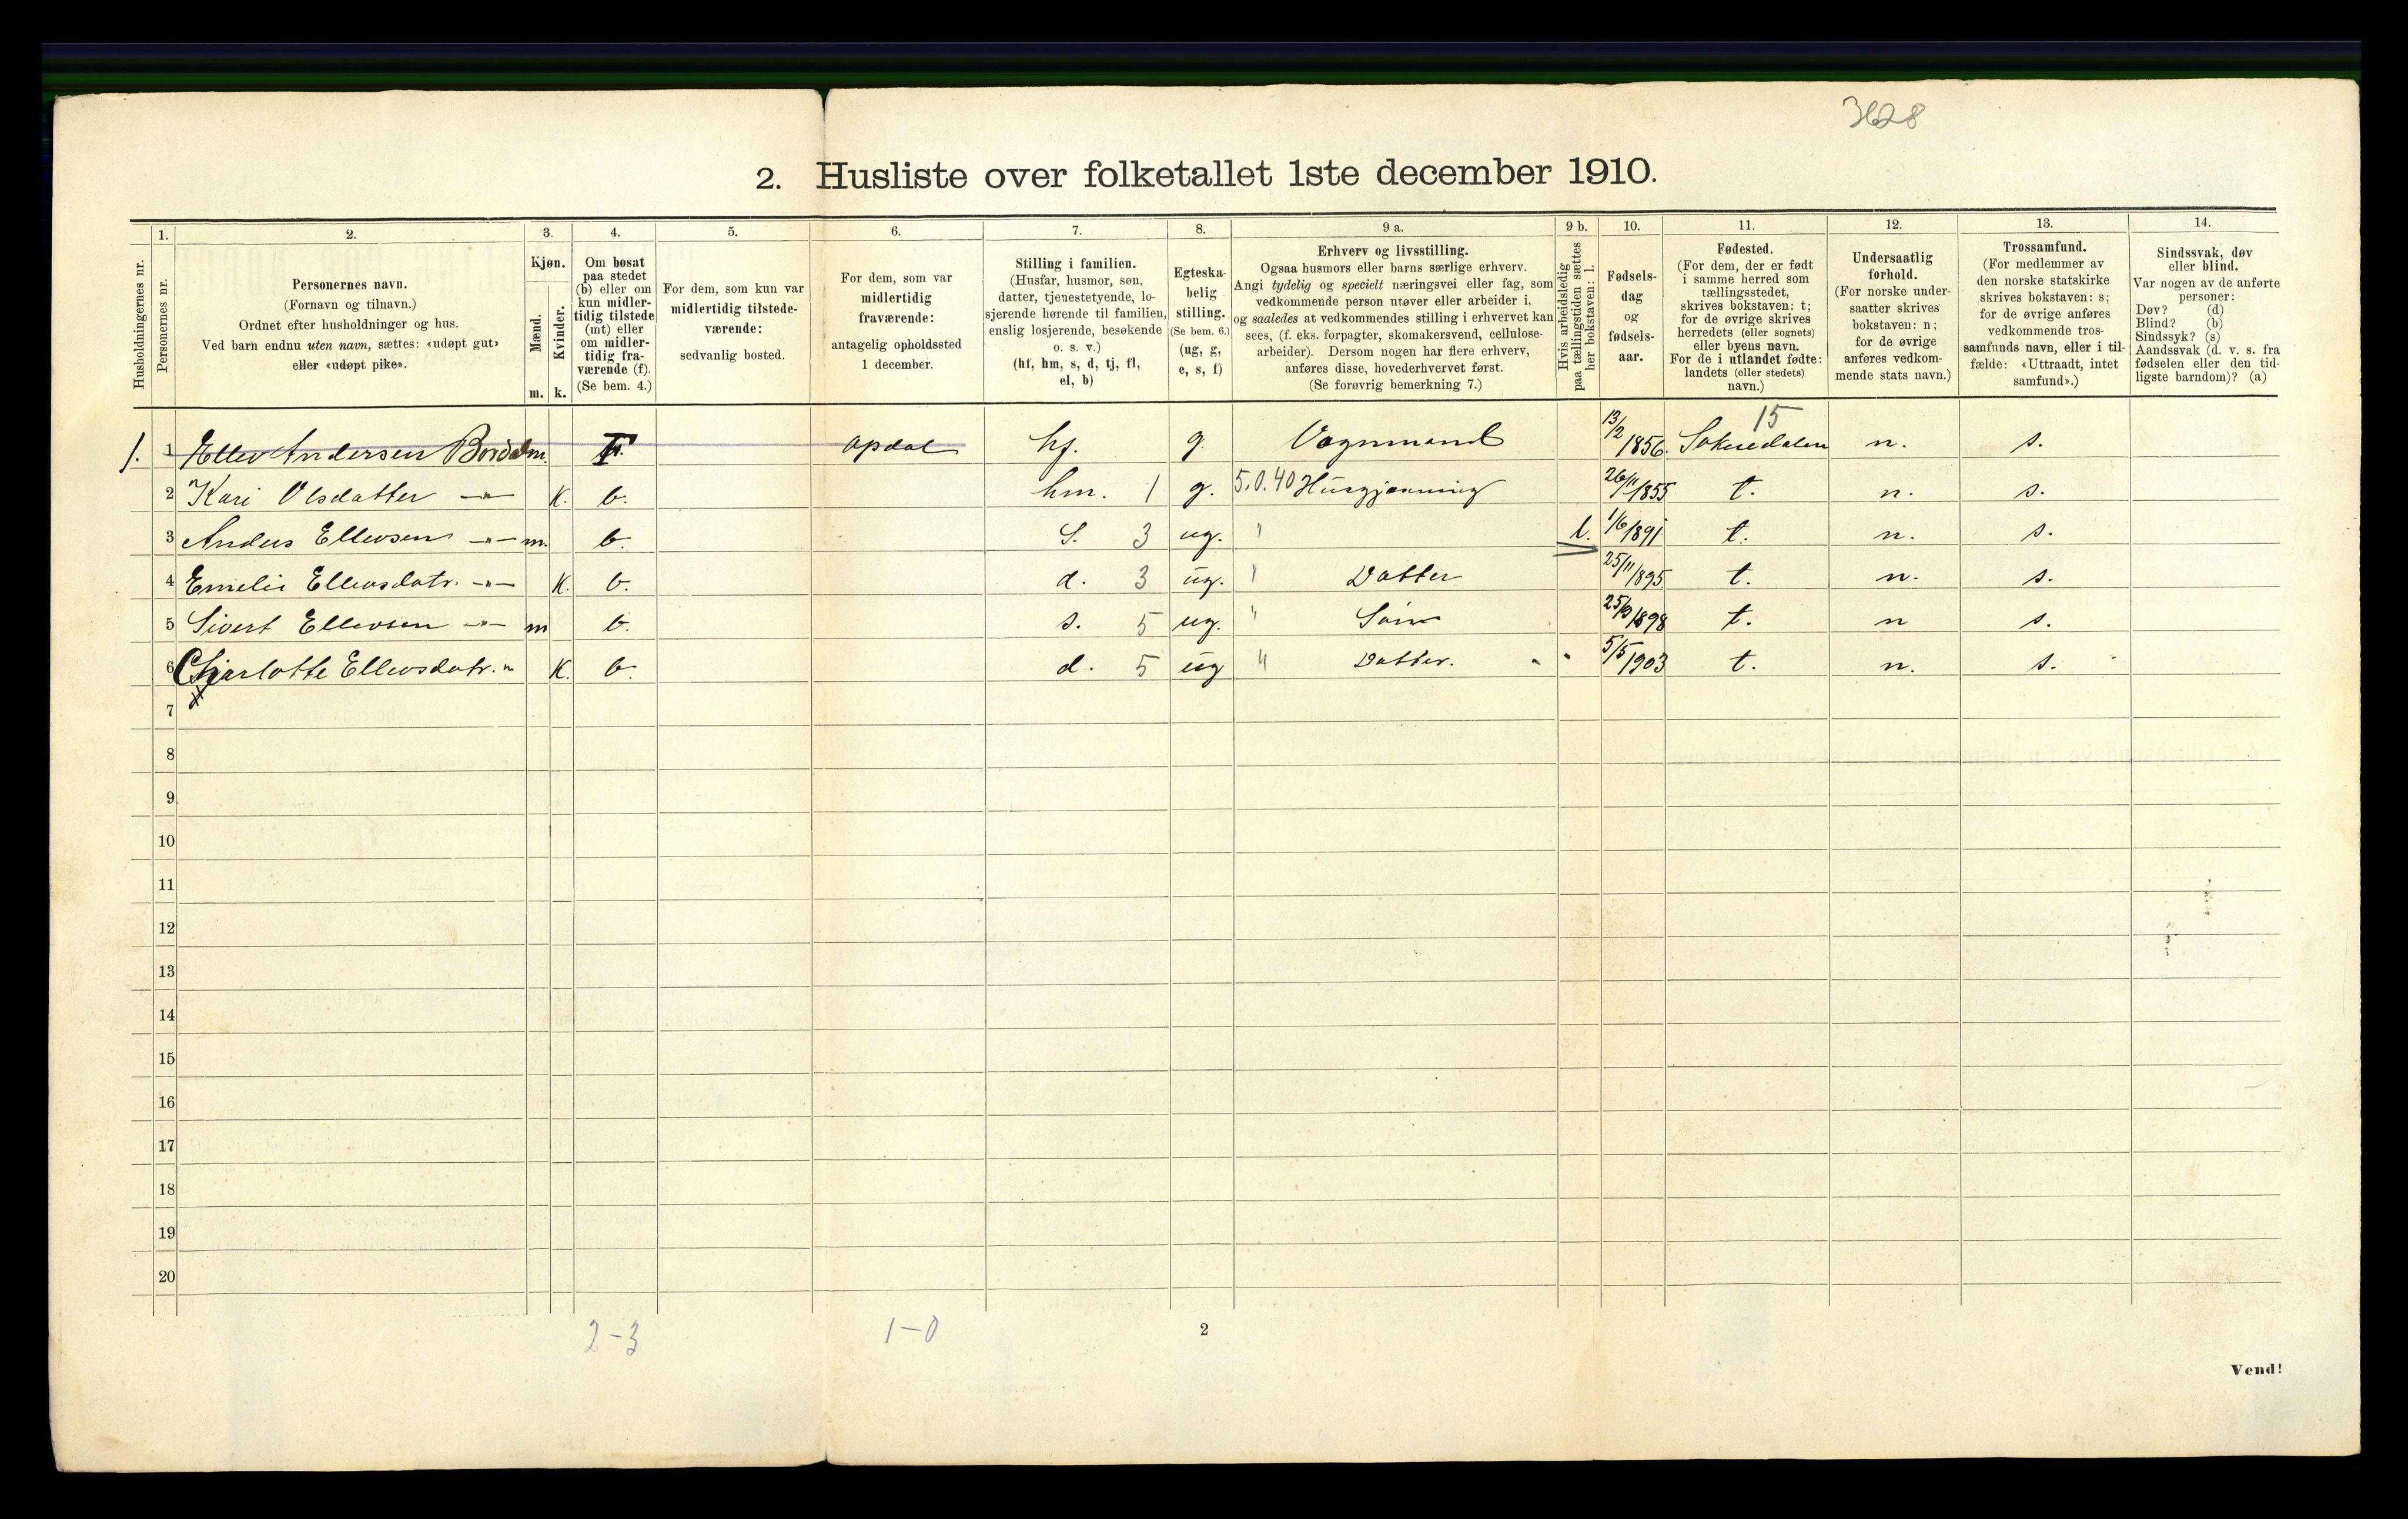 3628
2. Husliste over folketallet 1ste december 1910.
Husholdningernes nr.
1.
Personernes nr.
2.
Personernes navn.
(Fornavn og tilnavn.)
Ordnet efter husholdninger og hus.
Ved barn endnu uten navn, sættes: «udøpt gut»
eller «udøpt pike».
3.
Kjøn.
Mænd.
Kvinder.
m. k.
4.
Om bosat
paa stedet
(b) eller om
kun midler-
tidig tilstede
(mt) eller
om midler-
tidig fra-
værende (f).
(Se bem. 4.)
5.
For dem, som kun var
midlertidig tilstede-
værende:
sedvanlig bosted.
6.
For dem, som var
midlertidig
fraværende:
antagelig opholdssted
1 december.
7.
Stilling i familien.
(Husfar, husmor, søn,
datter, tjenestetyende, lo-
sjerende hørende til familien,
enslig losjerende, besøkende
o. s. v.)
(hf, hm, s, d, tj, fl,
el, b)
8.
Egteska-
belig
stilling.
(Se bem. 6.)
(ug, g,
e, s, f)
9 a.
Erhverv og livsstilling.
Ogsaa husmors eller barns særlige erhverv.
Angi tydelig og specielt næringsvei eller fag, som
vedkommende person utøver eller arbeider i,
og saaledes at vedkommendes stilling i erhvervet kan
sees, (f. eks. forpagter, skomakersvend, cellulose-
arbeider). Dersom nogen har flere erhverv,
anføres disse, hovederhvervet først.
(Se forøvrig bemerkning 7.)
9 b.
Hvis arbeidsledig
paa tællingstiden sættes
her bokstaven: l.
10.
Fødsels-
dag
og
fødsels-
aar.
11.
Fødested.
(For dem, der er født
i samme herred som
tællingsstedet,
skrives bokstaven: t;
for de øvrige skrives
herredets (eller sognets)
eller byens navn.
For de i utlandet fødte:
landets (eller stedets)
navn.)
12.
Undersaatlig
forhold.
(For norske under-
saatter skrives
bokstaven: n;
for de øvrige
anføres vedkom-
mende stats navn.)
13.
Trossamfund.
(For medlemmer av
den norske statskirke
skrives bokstaven: s;
for de øvrige anføres
vedkommende tros-
samfunds navn, eller i til-
fælde: «Uttraadt, intet
samfund».)
14.
Sindssvak, døv
eller blind.
Var nogen av de anførte
personer:
Døv? (d)
Blind? (b)
Sindssyk? (s)
Aandssvak (d. v. s. fra
fødselen eller den tid-
ligste barndom)? (a)
15
1. 1 Ellev Andersen m. F. opdal hf. g. Vognmand 13/2 1856. n. s.
2 Kari Olsdatter -"- K. b. hm. 1 g. 5.0.40 Husgjerning 26/11 1855 t. n. s.
3 Anders Ellevsen -"- m. b. S. 3 ug. " l. 1/6 1891 t. n. s.
4 Emelie Ellevsdatr. -"- K. b. d. 3 ug. " Datter 25/11 1895 t. n. s.
5 Sivert Ellevsen -"- m b. s. 5 ug. " Søn 1898 t. n s.
6 Charlotte Ellevsdatr. " K. b. d. 5 ug " Datter. 5/5 1903 t. n. s.
x
7
8
9
10
11
12
13
14
15
16
17
18
19
20
2-3 1-0 2
Vend!